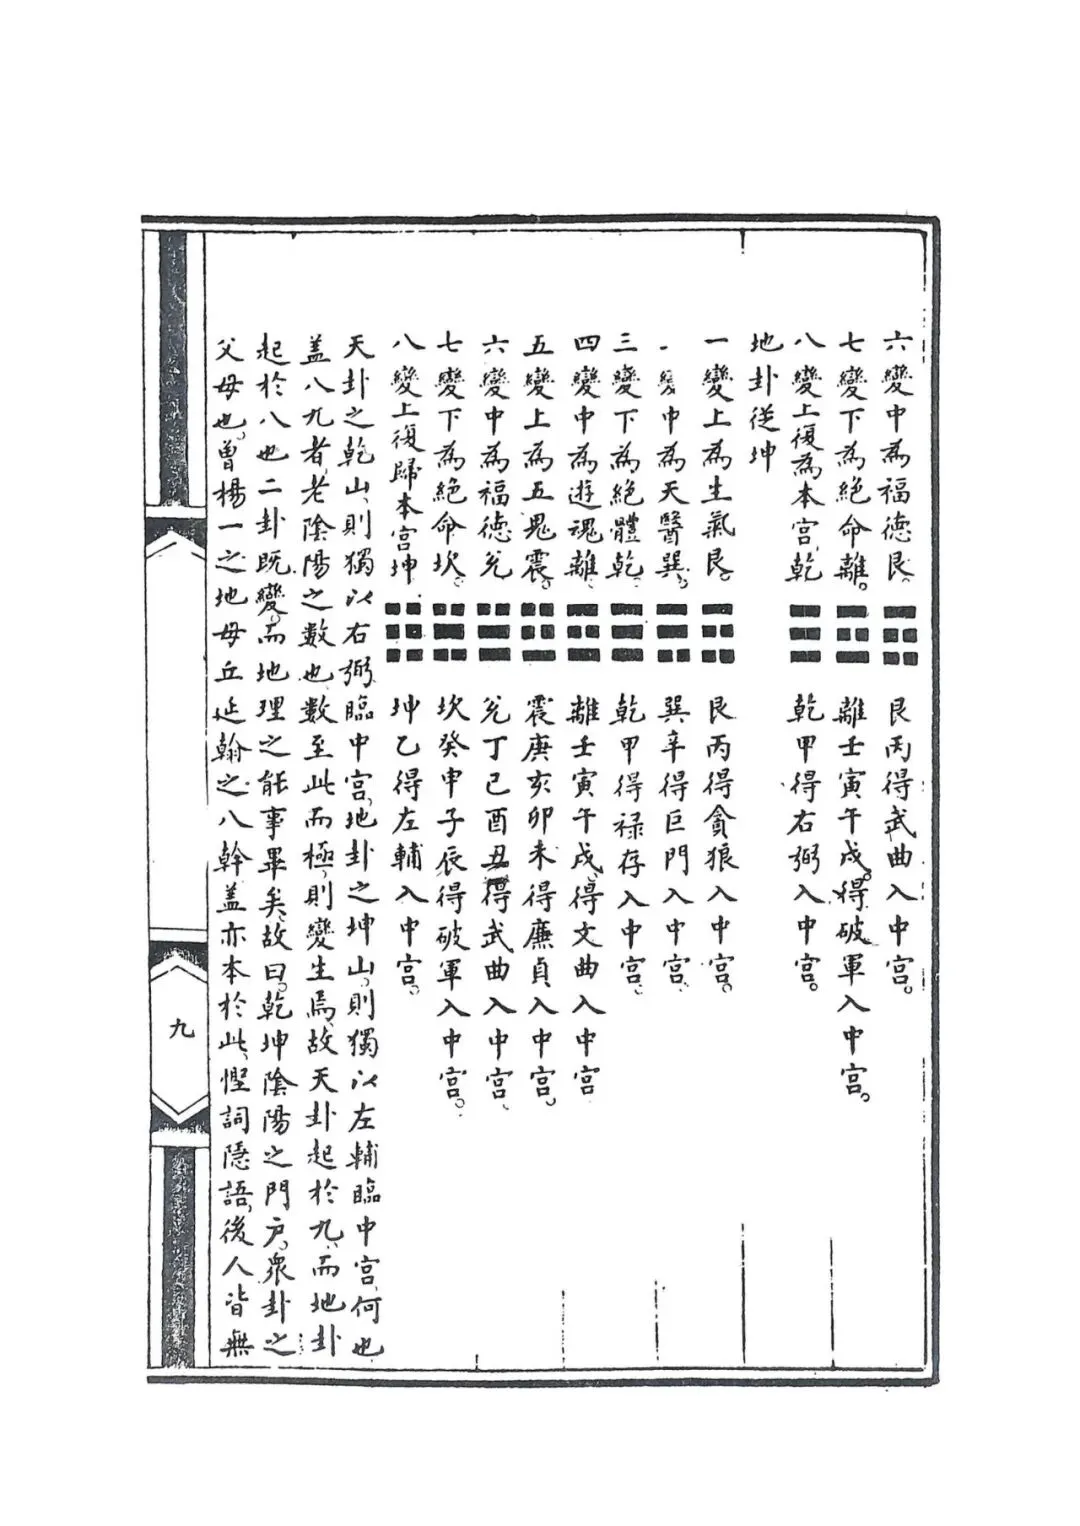 六變中為福德艮。☶艮丙得武曲入中宮。
七變下為絕命離。☲離壬寅午戌。得破軍入中宮。
八變上復為本宮乾☰乾甲得右弼入中宮。
地卦從坤
一變上為生氣艮。☶艮丙得貪狼入中宮。
變中為天醫巽。☴巽辛得巨門入中宮。
三變下為絕體乾。☰乾甲得祿存入中宮。
四變中為遊魂離。☲離壬寅午戌、得文曲入中宮
五變上為五鬼震。☳震庚亥卯未得廉貞入中宮。
六變中為福德兌☱兌丁巳酉丑得武曲入中宮。
七變下為絕命坎。☵坎癸申子辰得破軍入中宮。
八變上復歸本宮坤☷坤乙得左輔入中宮。
天卦之乾山、則獨以右弼臨中宮、地卦之坤山、則獨以左輔臨中宮、何也
蓋八九者、老陰陽之數也、數至此而極、則變生焉、故天卦起於九、而地卦
起於八也二卦既變。而地理之能事畢矣、故曰。乾坤陰陽之門户。眾卦之
父母也。曾楊一之地母丘延翰之八幹蓋亦本於此、慳詞隱語、後人皆無
九